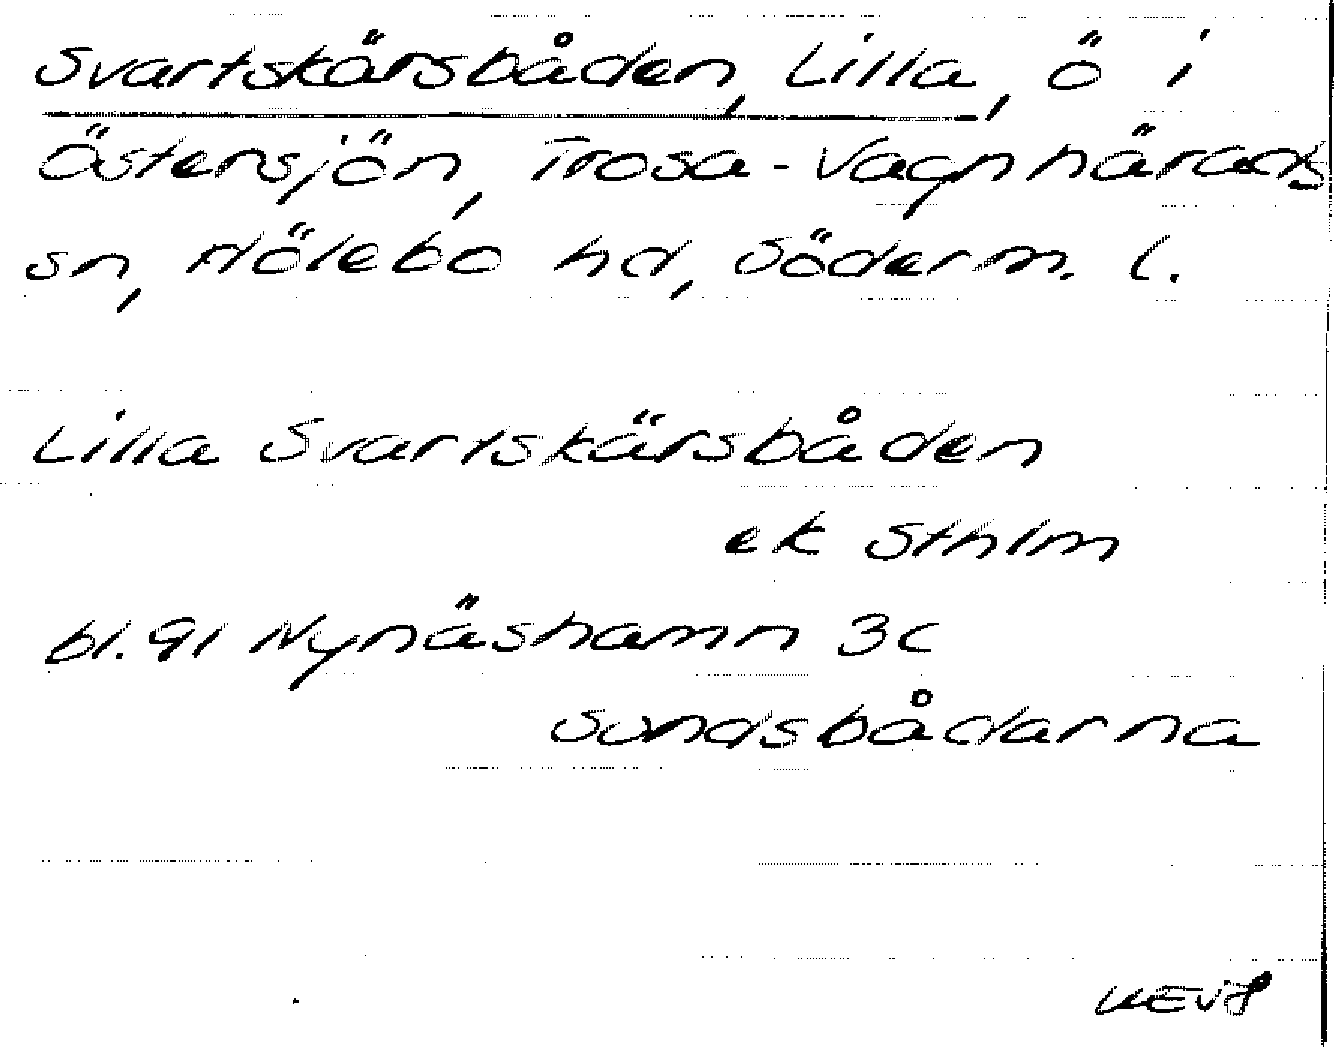 Svartskärsbåden, Lilla, ö i
Östersjön, Trosa-Vagnhärads
sn, Hölebo hd, Söderm. l.
Lilla Svartskärsbåden
ek Sthlm
bl. 91 Nynäshamn 3c
Sundsbådarna